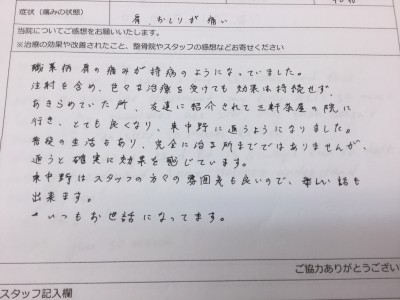 症状（痛みの状態）
肩、おしりが痛い
当院についてご感想をお願いいたします。
※治療の効果や改善されたこと、整骨院やスタッフの感想などお寄せください
職業柄肩の痛みが持病のようになっていました。
注射を含め、色々な治療を受けても効果は持続せず、
あきらめていた所、友達に紹介されて三軒茶屋の院に
行き、とても良くなり、東中野に通うようになりました。
普段の生活もあり、完全に治る所までではありませんが、
通うと確実に効果を感じています。
東中野はスタッフの方々の雰囲気も良いので、楽しい話も
出来ます。
いつもお世話になってます。
ご協力ありがとうござい
スタッフ記入欄